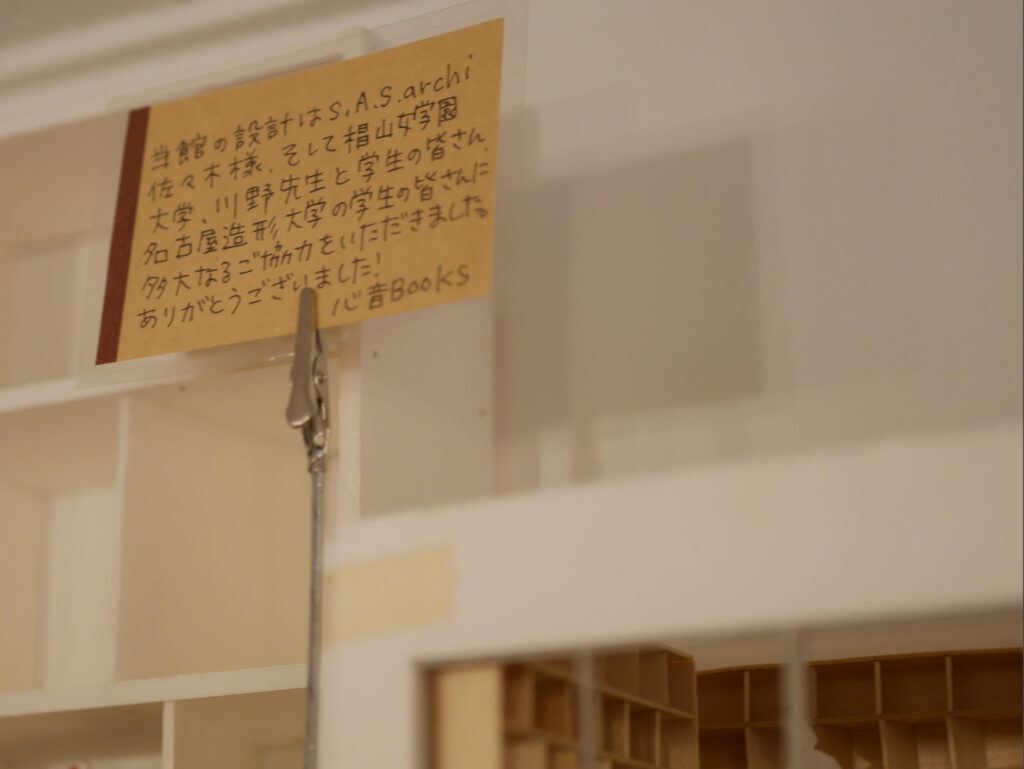 当館の設計はS.A.S.archi
佐々木様、そして椙山女学園
大学、川野先生と学生の皆さん、
名古屋造形大学の学生の皆さんに
多大なるご協力をいただきました。
ありがとうございました!
心音BOOKS